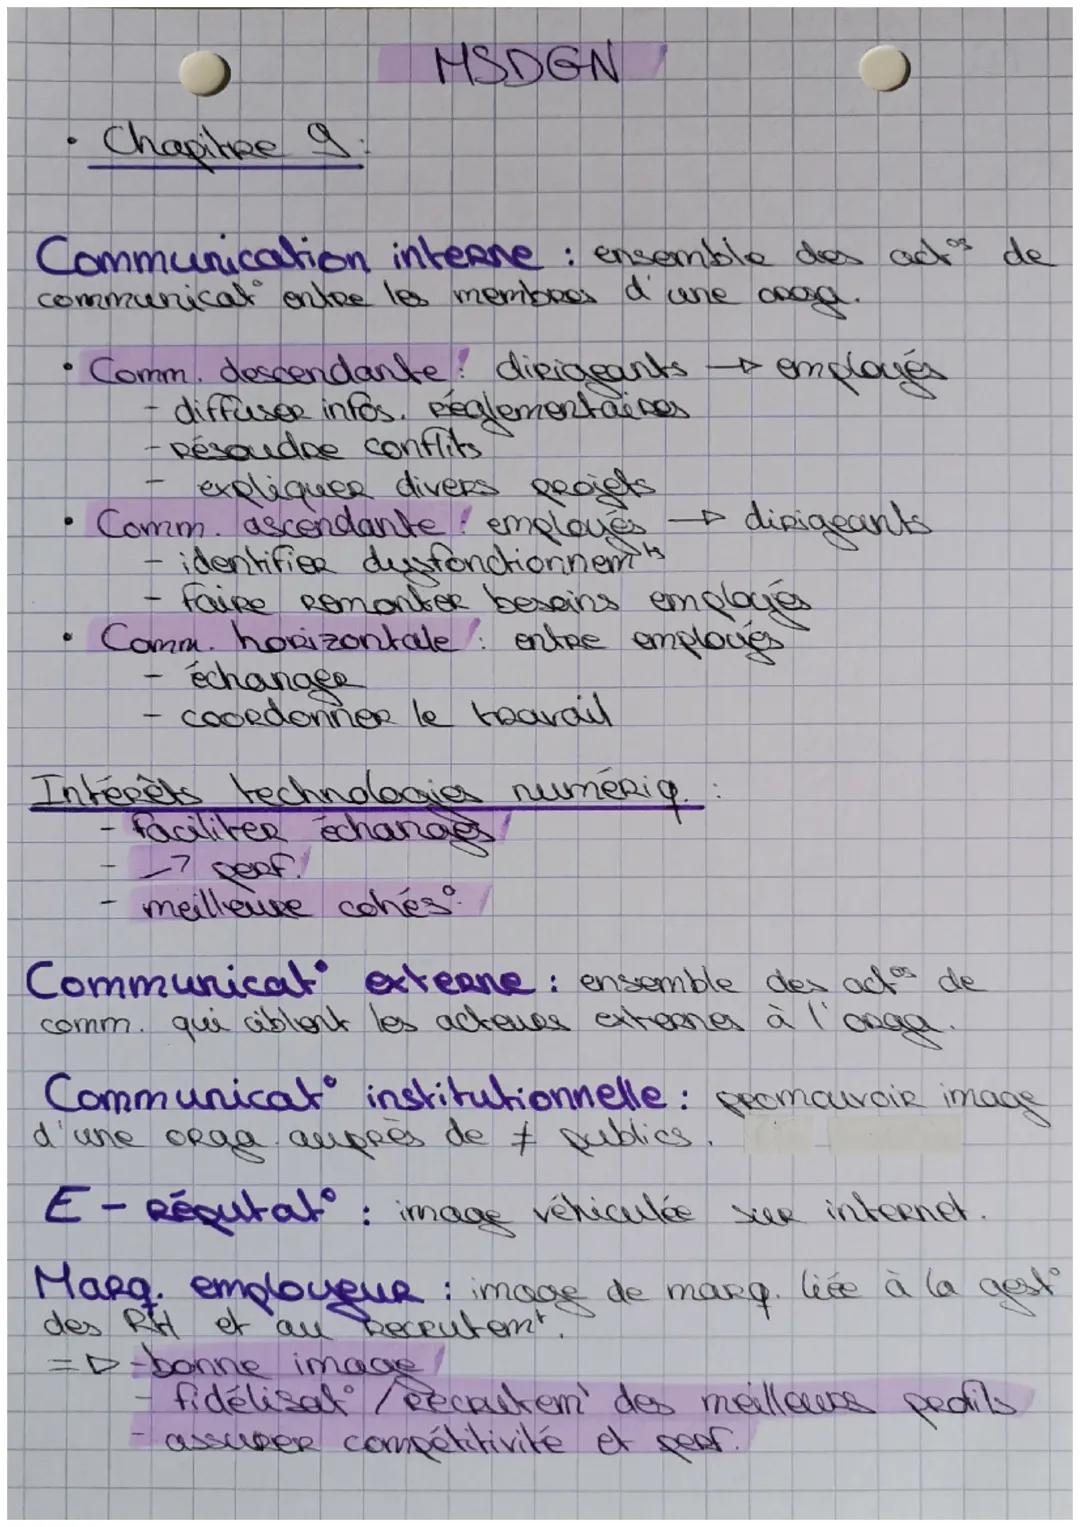 MSDGN
• Chapitre 9 :
Communication interne : ensemble des act°s de
communicat° entre les membres d'une orga.
• Comm. descendante : dirigeants → employés
- diffuser infos. réglementaires
- résoudre conflits
- expliquer divers projets
• Comm. ascendante : employés → dirigeants
- identifier dysfonctionnemts
- faire remonter besoins employés
• Comm. horizontale : entre employés
- échanger
- coordonner le travail
Intérêts technologies numériq. :
- faciliter échanges
- ↗ perf.
- meilleure cohés°
Communicat° externe : ensemble des act°s de
comm. qui ciblent les acteurs externes à l'orga.
Communicat° institutionnelle : promouvoir image
d'une orga. auprès de ≠ publics.
E-réputat° : image véhiculée sur internet.
Marq. employeur : image de marq. liée à la gest°
des RH et au recrutemt.
=> - bonne image
- fidélisat° / recrutemt des meilleurs profils
- assurer compétitivité et perf.